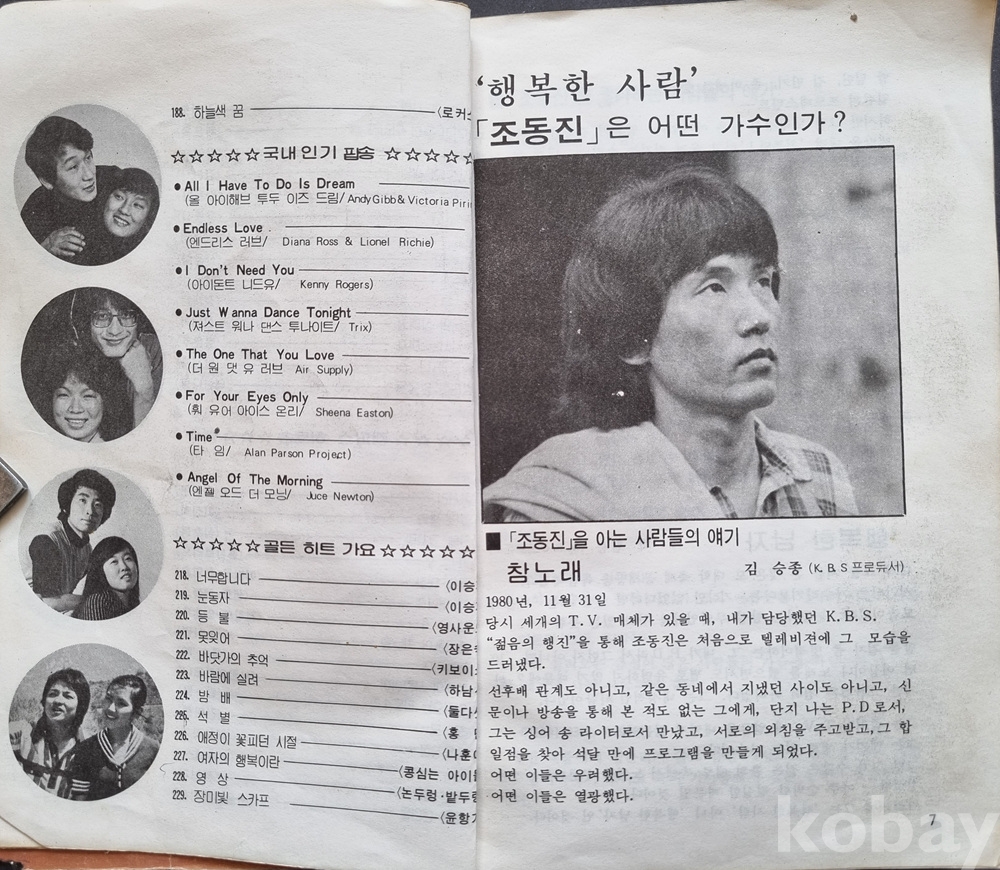 188. 하늘색 꿈 (로커스
☆☆☆☆☆국내인기 팝송 ☆☆☆☆☆
●All I Have To Do Is Dream
(올 아이해브 투두 이즈 드림/ Andy Gibb & Victoria Pirin
●Endless Love
(엔드리스 러브/ Diana Ross & Lionel Richie)
●I Don't Need You
(아이돈트 니드유/ Kenny Rogers)
●Just Wanna Dance Tonight
(져스트 워나 댄스 투나이트/ Trix)
●The One That You Love
(더 원 댓 유 러브 Air Supply)
●For Your Eyes Only
(훠 유어 아이스 온리/ Sheena Easton)
●Time
(타 임/ Alan Parson Project)
●Angel Of The Morning
(엔젤 오드 더 모닝/ Juce Newton)
☆☆☆☆☆골든 히트 가요☆☆☆☆☆
218. 너무합니다 (이승
219. 눈동자 (이승
220. 등 불 (영사운
221. 못잊어 (장은
222. 바닷가의 추억 (키보이
223. 바람에 실려 (하남
224. 밤 배 (둘다
225. 석 별 (홍
226. 애정이 꽃피던 시절 (나훈
227. 여자의 행복이란 (콩심는 아이
228. 영 상 (논두렁·밭두렁
229. 장미빛 스카프 (윤항
'행복한 사람'
「조동진」은 어떤 가수인가?
■「조동진」을 아는 사람들의 얘기
참노래 김 승종 (K.B.S 프로듀서)
1980년, 11월 31일
당시 세개의 T.V. 매체가 있을 때, 내가 담당했던 K.B.S.
"젊음의 행진"을 통해 조동진은 처음으로 텔레비젼에 그 모습을
드러냈다.
선후배 관계도 아니고, 같은 동네에서 지냈던 사이도 아니고, 신
문이나 방송을 통해 본 적도 없는 그에게, 단지 나는 P.D로서,
그는 싱어 송 라이터로서 만났고, 서로의 외침을 주고받고, 그 합
일점을 찾아 석달 만에 프로그램을 만들게 되었다.
어떤 이들은 우려했다.
어떤 이들은 열광했다.
7
kobay